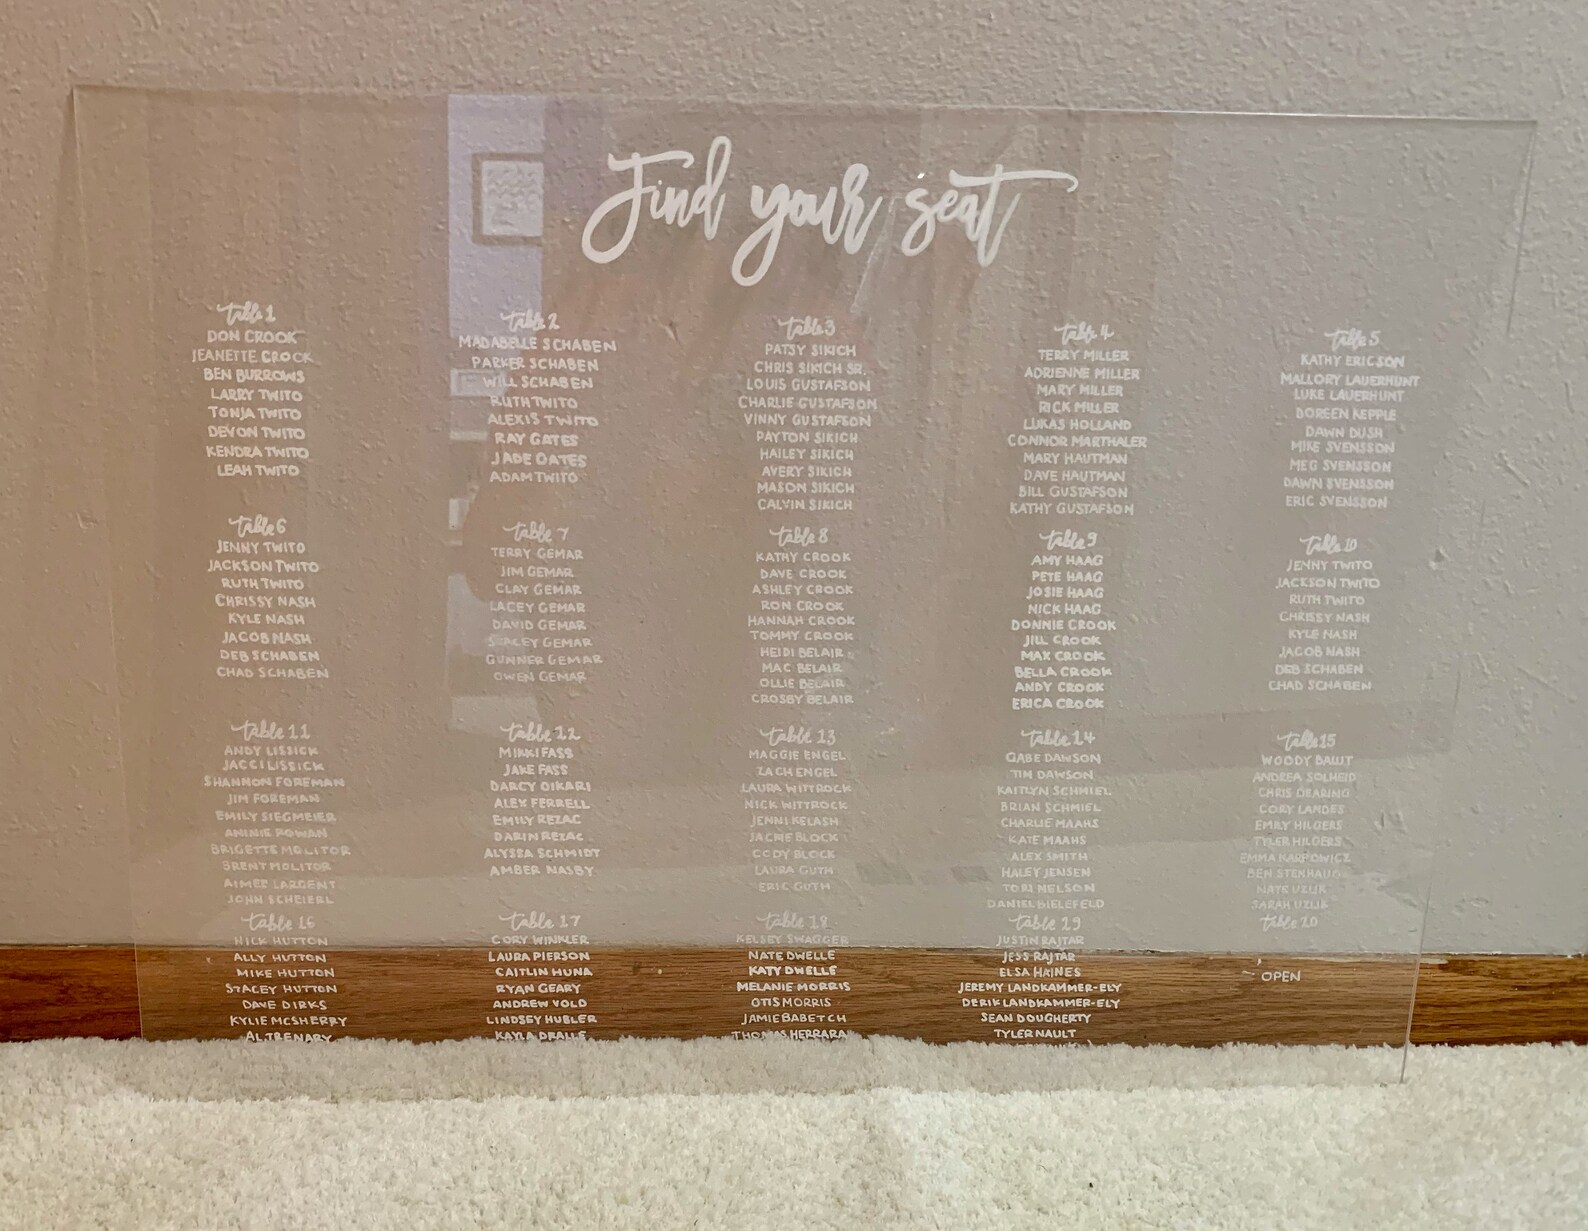 Find your seat
table 1
DON CROOK
JEANETTE CROOK
BEN BURROWS
LARRY TWITO
TONJA TWITO
DEVON TWITO
KENDRA TWITO
LEAH TWITO
table 2
MADABELLE SCHABEN
PARKER SCHABEN
WILL SCHABEN
RUTH TWITO
ALEXIS TWITO
RAY GATES
JADE OATES
ADAM TWITO
table 3
PATSY SIKICH
CHRIS SIKICH SR.
LOUIS GUSTAFSON
CHARLIE GUSTAFSON
VINNY GUSTAFSON
PAYTON SIKICH
HAILEY SIKICH
AVERY SIKICH
MASON SIKICH
CALVIN SIKICH
table 4
TERRY MILLER
ADRIENNE MILLER
MARY MILLER
RICK MILLER
LUKAS HOLLAND
CONNOR MARTHALER
MARY HAUTMAN
DAVE HAUTMAN
BILL GUSTAFSON
KATHY GUSTAFSON
table 5
KATHY ERICSON
MALLORY LAUERHUNT
LUKE LAUERHUNT
DOREEN KEPPLE
DAWN DUSH
MIKE SVENSSON
MEG SVENSSON
DAWN SVENSSON
ERIC SVENSSON
table 6
JENNY TWITO
JACKSON TWITO
RUTH TWITO
CHRISSY NASH
KYLE NASH
JACOB NASH
DEB SCHABEN
CHAD SCHABEN
table 7
TERRY GEMAR
JIM GEMAR
CLAY GEMAR
LACEY GEMAR
DAVID GEMAR
STACEY GEMAR
GUNNER GEMAR
OWEN GEMAR
table 8
KATHY CROOK
DAVE CROOK
ASHLEY CROOK
RON CROOK
HANNAH CROOK
TOMMY CROOK
HEIDI BELAIR
MAC BELAIR
OLLIE BELAIR
CROSBY BELAIR
table 9
AMY HAAG
PETE HAAG
JOSIE HAAG
NICK HAAG
DONNIE CROOK
JILL CROOK
MAX CROOK
BELLA CROOK
ANDY CROOK
ERICA CROOK
table 10
JENNY TWITO
JACKSON TWITO
RUTH TWITO
CHRISSY NASH
KYLE NASH
JACOB NASH
DEB SCHABEN
CHAD SCHABEN
table 11
ANDY LISSICK
JACCI LISSICK
SHANNON FOREMAN
JIM FOREMAN
EMILY SIEGMEIER
ANINIE ROWAN
BRIGETTE MOLITOR
BRENT MOLITOR
AIMEE LARGENT
JOHN SCHEIERL
table 12
MIKKI FASS
JAKE FASS
DARCY OIKARI
ALEX FERRELL
EMILY REZAC
DARIN REZAC
ALYSSA SCHMIDT
AMBER NASBY
table 13
MAGGIE ENGEL
ZACH ENGEL
LAURA WITTROCK
NICK WITTROCK
JENNI KELASH
JACKIE BLOCK
CODY BLOCK
LAURA GUTH
ERIC GUTH
table 14
GABE DAWSON
TIM DAWSON
KAITLYN SCHMIEL
BRIAN SCHMIEL
CHARLIE MAAHS
KATE MAAHS
ALEX SMITH
HALEY JENSEN
TORI NELSON
DANIEL BIELEFELD
table 15
WOODY BALLIT
ANDREA SOLHEID
CHRIS DEARING
CORY LANDES
EMILY HILGERS
TYLER HILGERS
EMMA KARPOWICZ
BEN STENHAUG
NATE UZLIK
SARAH UZLIK
table 16
NICK HUTTON
ALLY HUTTON
MIKE HUTTON
STACEY HUTTON
DAVE DIRKS
KYLIE MCSHERRY
AL TRENARY
table 17
CORY WINKLER
LAURA PIERSON
CAITLIN HUNA
RYAN GEARY
ANDREW VOLD
LINDSEY HUBLER
KAYLA DRALLE
table 18
KELSEY SWAGGER
NATE DWELLE
KATY DWELLE
MELANIE MORRIS
OTIS MORRIS
JAMIE BABETCH
THOMAS HERRARA
table 19
JUSTIN RAJTAR
JESS RAJTAR
ELSA HAINES
JEREMY LANDKAMMER-ELY
DERIK LANDKAMMER-ELY
SEAN DOUGHERTY
TYLER NAULT
table 20
OPEN